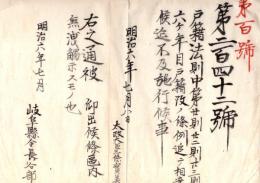 第百號
第二百四十二號
戸籍法則中第廿廿二廿三則
六ケ年目戸籍改ノ條例追テ相達
候迄不及施行候事
明治六年七月八日
右之通被　御出候條區内
無洩觸示スモノ也
明治六年七月
岐阜縣令長谷部